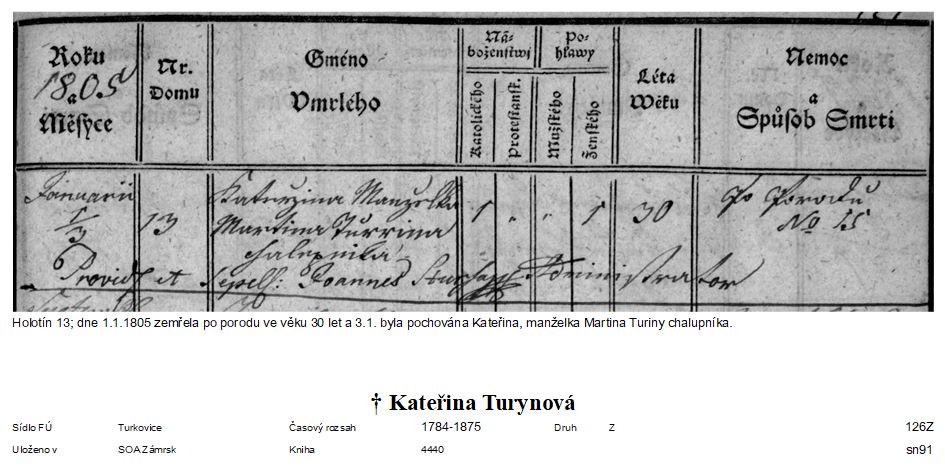 Roku
1805
a
Měsyce
Nr.
Domu
Gméno
Vmrlého
Náboženstwj
Katolického
Protestansk.
Pohlawy
Mužského
Ženského
Léta
Wěku
Nemoc
a
Spůsob Smrti
Januarii
1/3
13
Katuržina Manželka
Martina Turrina
chalupnika
1 „ „ 1
30
Po Porodu
No 15
Provid et Sepell: Joannes Administrator
Holotín 13; dne 1.1.1805 zemřela po porodu ve věku 30 let a 3.1. byla pochována Kateřina, manželka Martina Turiny chalupníka.
† Kateřina Turynová
Sídlo FÚ Turkovice Časový rozsah 1784-1875 Druh Z 126Z
Uloženo v SOA Zámrsk Kniha 4440 sn91